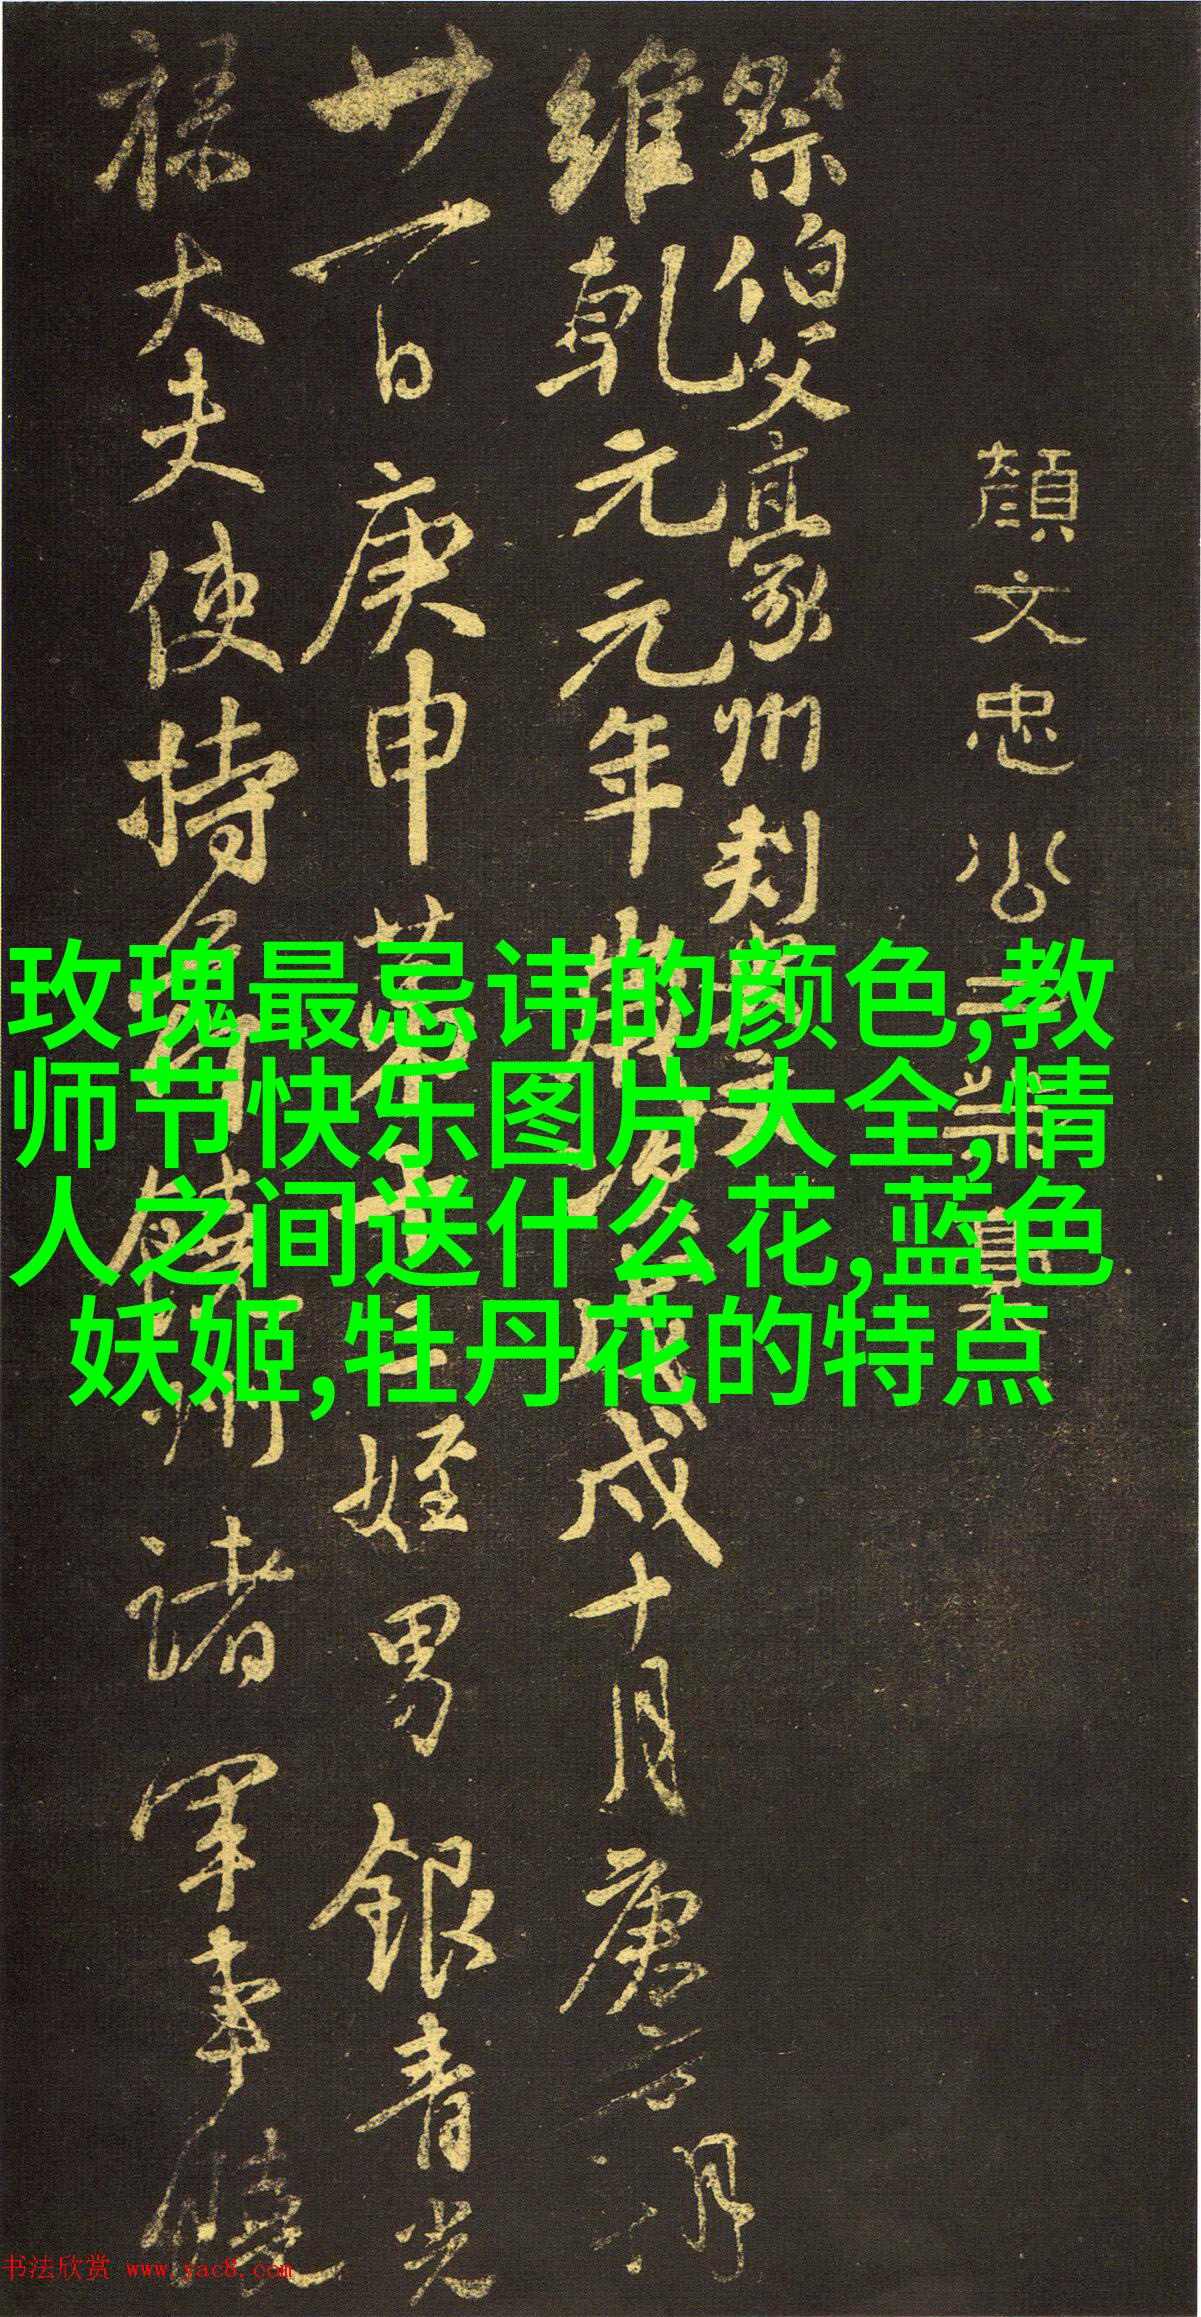 顔文忠公三
祭伯父豪州刺史文
維乾元元年歲次戊戌十月庚午朔
廿一日庚申第十三姪男銀青光
祿大夫使持節饒州諸軍事饒
玫瑰最忌讳的颜色,教
师节快乐图片大全,情
人之间送什么花,蓝色
妖姬,牡丹花的特点
书法欣赏 www.yac8.com